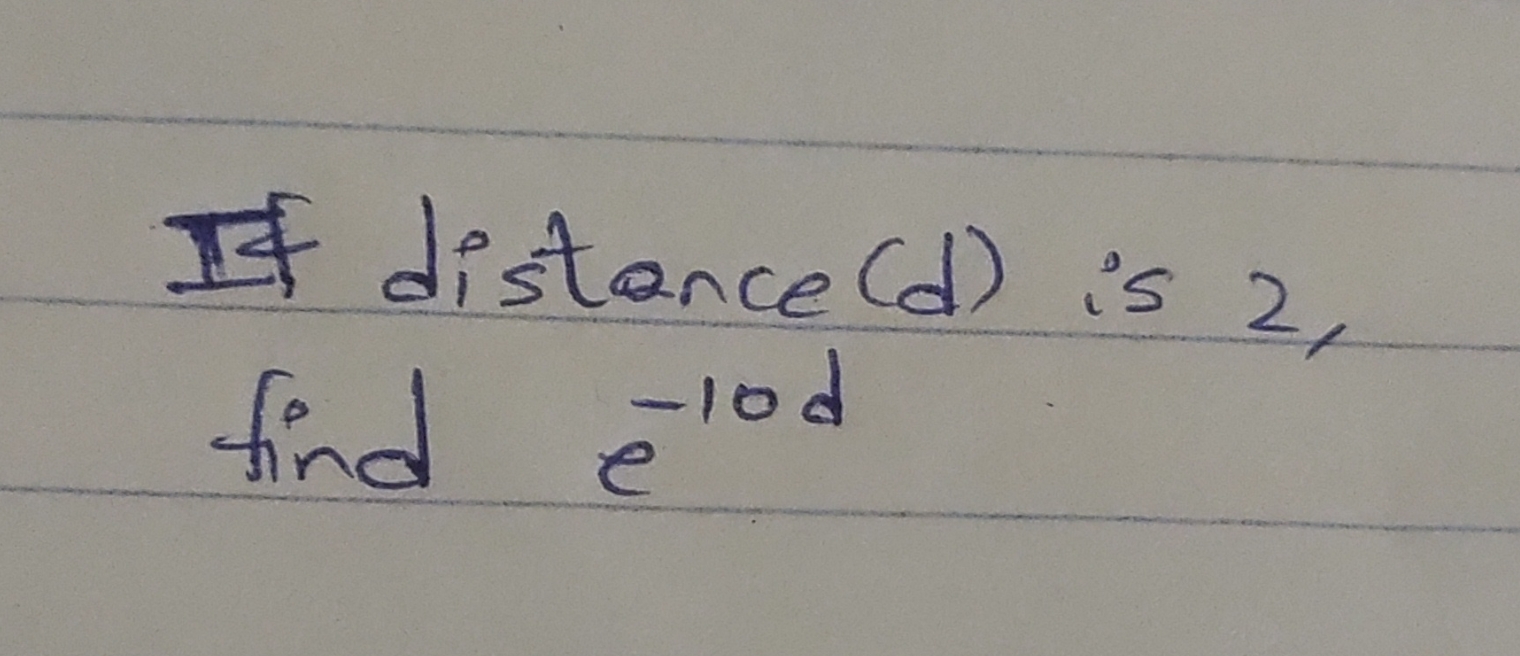 If distance(d) is 2,
find e^{-10d}